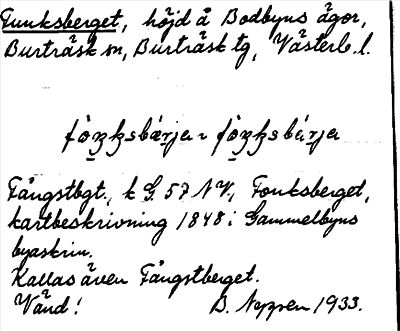 Funksberget, höjd å Bodbyns ägor,
Burträsk sn, Burträsk tg, Västerb. l.
Fångstbgt., k G. 57 NV, Fonksberget,
kartbeskrivning 1848 i Gammelbyns
byaskrin.
Kallas även Fångstberget.
Vänd! 1933.